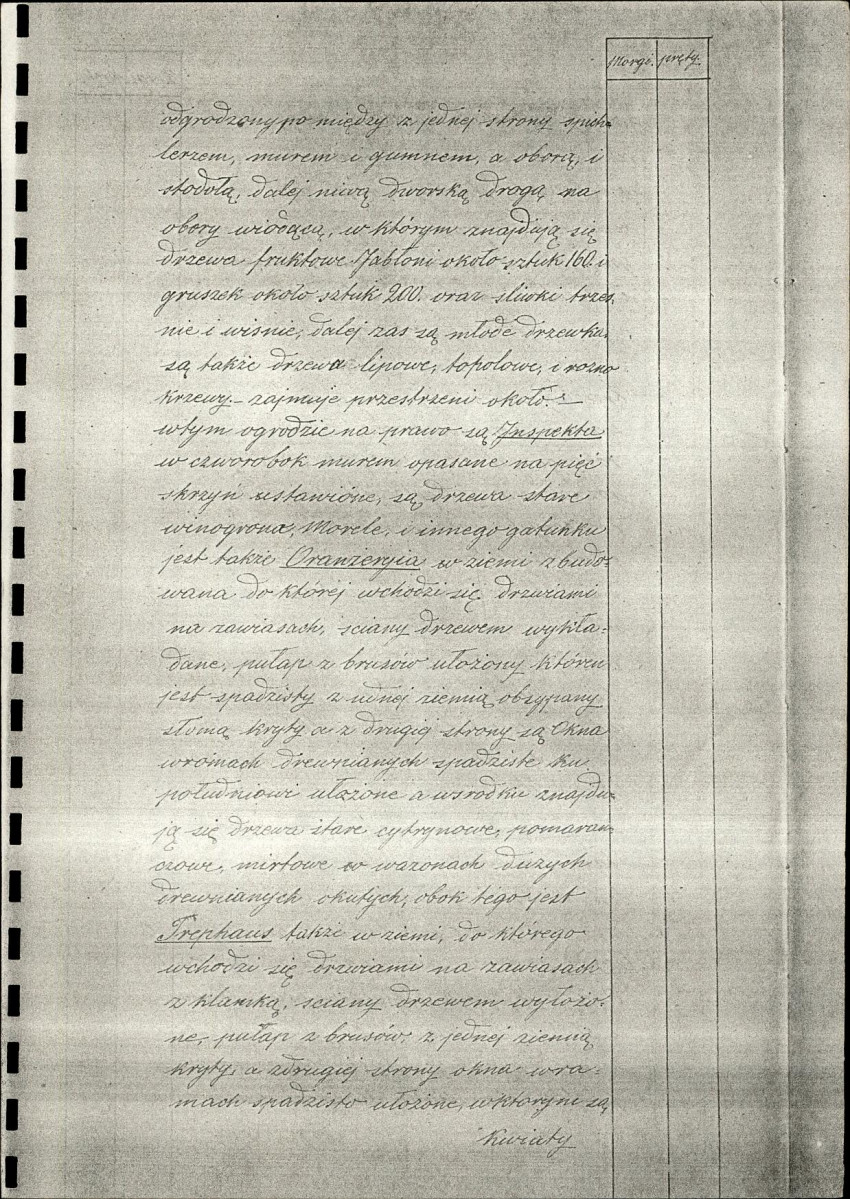 Morgi. pręty.
odgrodzony po między z jednej strony spich-
lerzem, murem i gumnem, a oborą, i
stodołą, dalej niwą dworską drogą na
obory wiodącą, w którym znajdują się
drzewa fruktowe Jabłoni około sztuk 160. i
gruszek około sztuk 200. oraz sliwki trzes-
nie i wisnie, dalej zas są młode drzewka,
są także drzewa lipowe, topolowe, i rozno
krzewy – zajmuje przestrzeni około. –
wtym ogrodzie na prawo są Inspekta
w czworobok murem opasane na pięć
skrzyń ustawióne, są drzewa stare
winogrona, Morele, i innego gatunku
jest także Oranżeryia w ziemi zbudo-
wana do której wchodzi się drzwiami
na zawiasach, sciany drzewem wykła-
dane, pułap z brusów ułożony któren
jest spadzisty z idnej ziemią obsypany
słomą kryty a z drugiej strony są Okna
wramach drewnianych spadziste ku
południowi ułożone a wsrodku znajdu-
ją się drzewa stare cytrynowe, pomarań-
czowe, mirtowe w wazonach dużych
drewnianych okutych, obok tego jest
Trephaus także w ziemi, do którego
wchodzi się drzwiami na zawiasach
z klamką, sciany drzewem wyłożo-
ne, pułap z brusów, z jednej ziemią
kryty, a zdrugiej strony okna wra-
mach spadzisto ułożone, wktorym są
Kwiaty